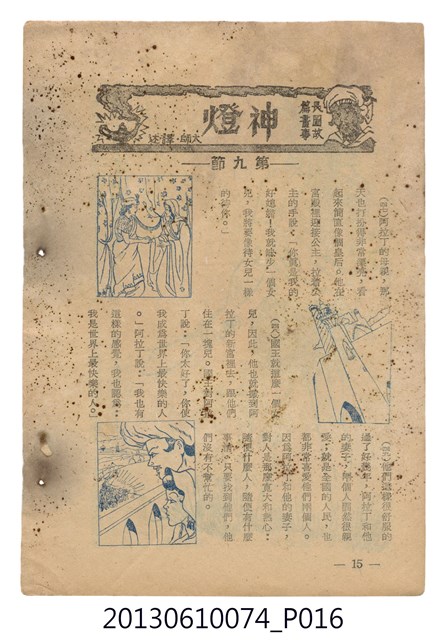 長篇故
篇畫事
神燈
大師·譯述
第九節
阿拉丁的母親，那
天也打扮得非常漂亮，看
起來簡直像個皇后。她在
宮殿裡迎接公主，拉着公
主的手說：「你是我的
好媳婦！我就缺少一個女
兒，我將要像待女兒一樣
的待你。」
國王就祇這麼一個女
兒，因此，他也就搬到阿
拉丁的新宮裡來，跟他們
住在一塊兒。國王對阿拉
丁說：「你太好了，你使
我成爲世界上最快樂的人
。」阿拉丁說：「我也有
這樣的感覺，我也認爲：
我是世界上最快樂的人。」
他們這樣很舒服的
過了好幾年，阿拉丁和他
的妻子，兩個人固然很親
愛；就是全國的人民，也
都非常喜愛他們兩個人。
因爲阿拉丁和他的妻子，
對人是那麼寬大和熱心：
隨便什麼人，隨便有什麼
事情，只要找到他們，他
們沒有不幫忙的。
— 15 —
20130610074_P016